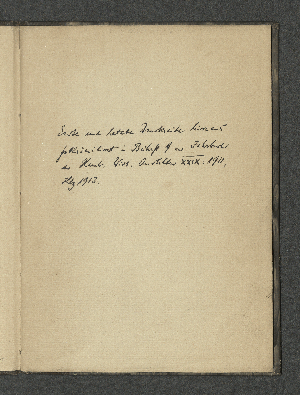 Erste und letzte Druckseite hieraus
in Beiheft d. Jahrbuchs
der Hamb. Wiss. Anstalten XXIX. 1911,
Hbg 1913.